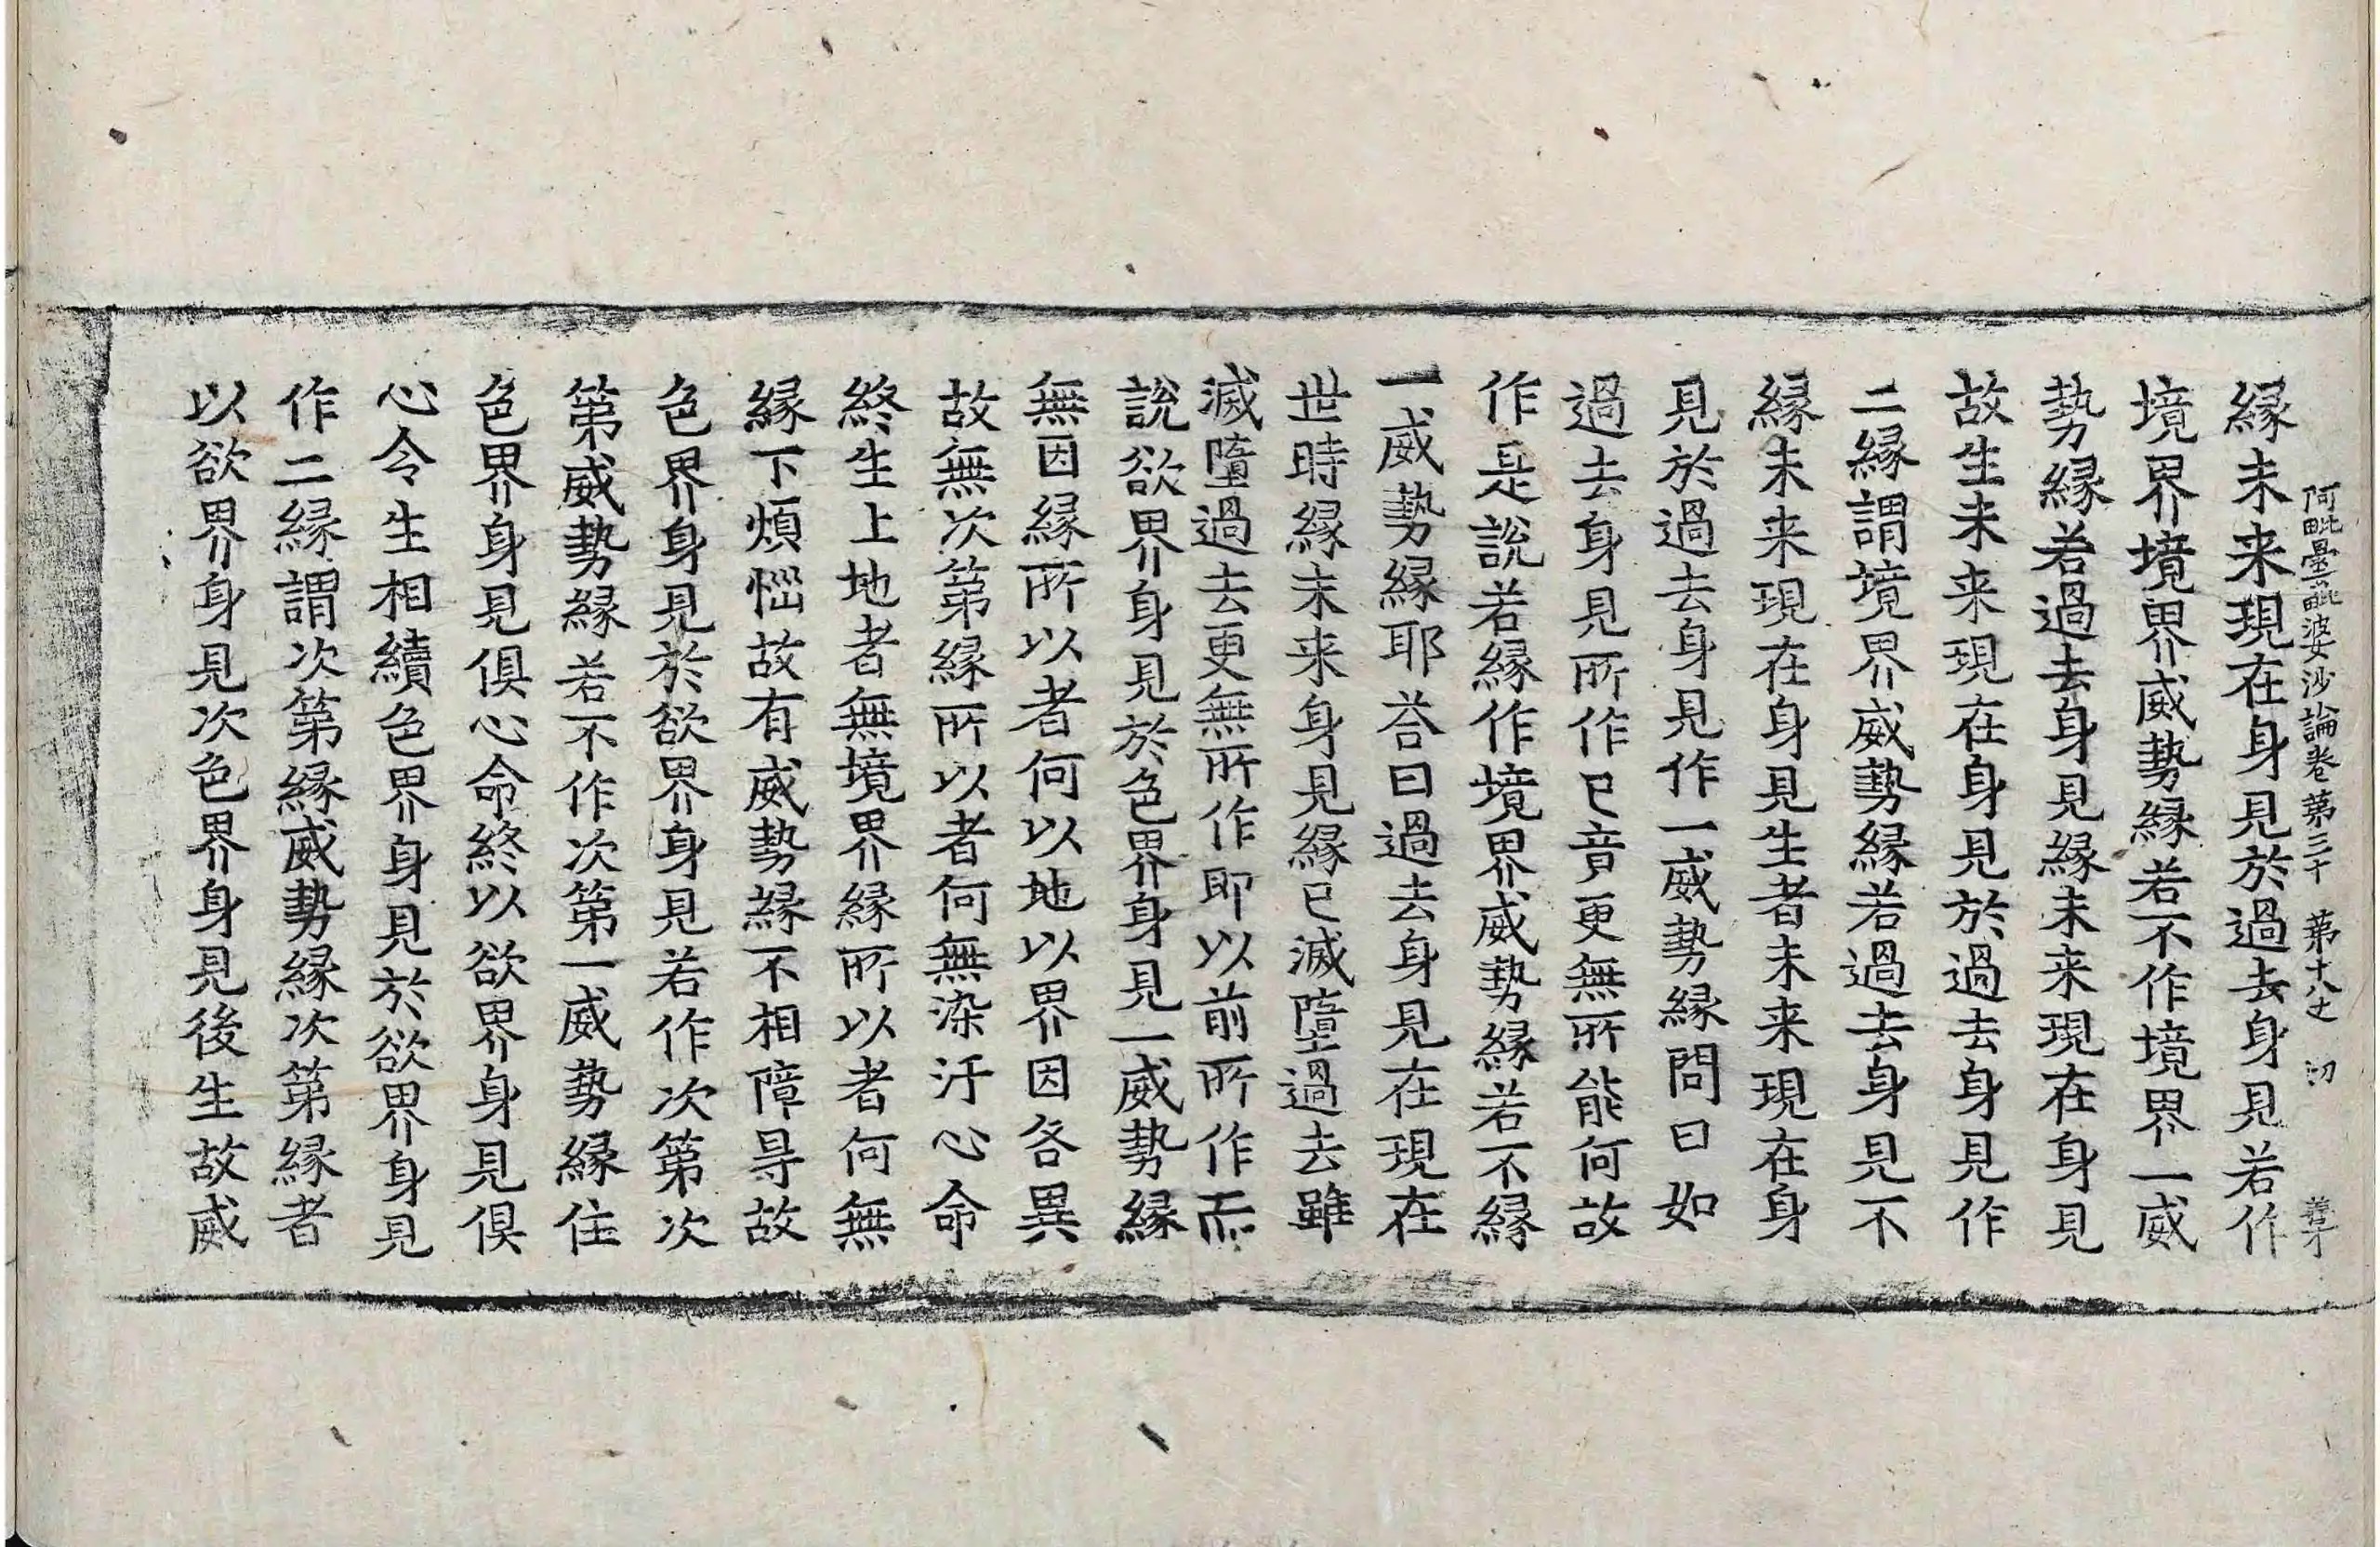 阿毗曇毗婆沙論卷第三十　第十八丈　切
縁未来現在身見於過去身見若作
境界境界威勢縁若不作境界一威
勢縁若過去身見縁未来現在身見
故生未来現在身見於過去身見作
二縁謂境界威勢縁若過去身見不
縁未来現在身見生者未来現在身
見於過去身見作一威勢縁問曰如
過去身見所作已竟更無所能何故
作是說若縁作境界威勢縁若不縁
一威勢縁耶荅曰過去身見在現在
世時縁未来身見縁已滅墮過去雖
滅墮過去更無所作即以前所作而
說欲界身見於色界身見一威勢縁
無因縁所以者何以地以界因各異
故無次第縁所以者何無染汙心命
終生上地者無境界縁所以者何無
縁下煩惱故有威勢縁不相障㝵故
色界身見於欲界身見若作次第次
第威勢縁若不作次第一威勢縁住
色界身見俱心命終以欲界身見俱
心令生相續色界身見於欲界身見
作二縁謂次第縁威勢縁次第縁者
以欲界身見次色界身見後生故威